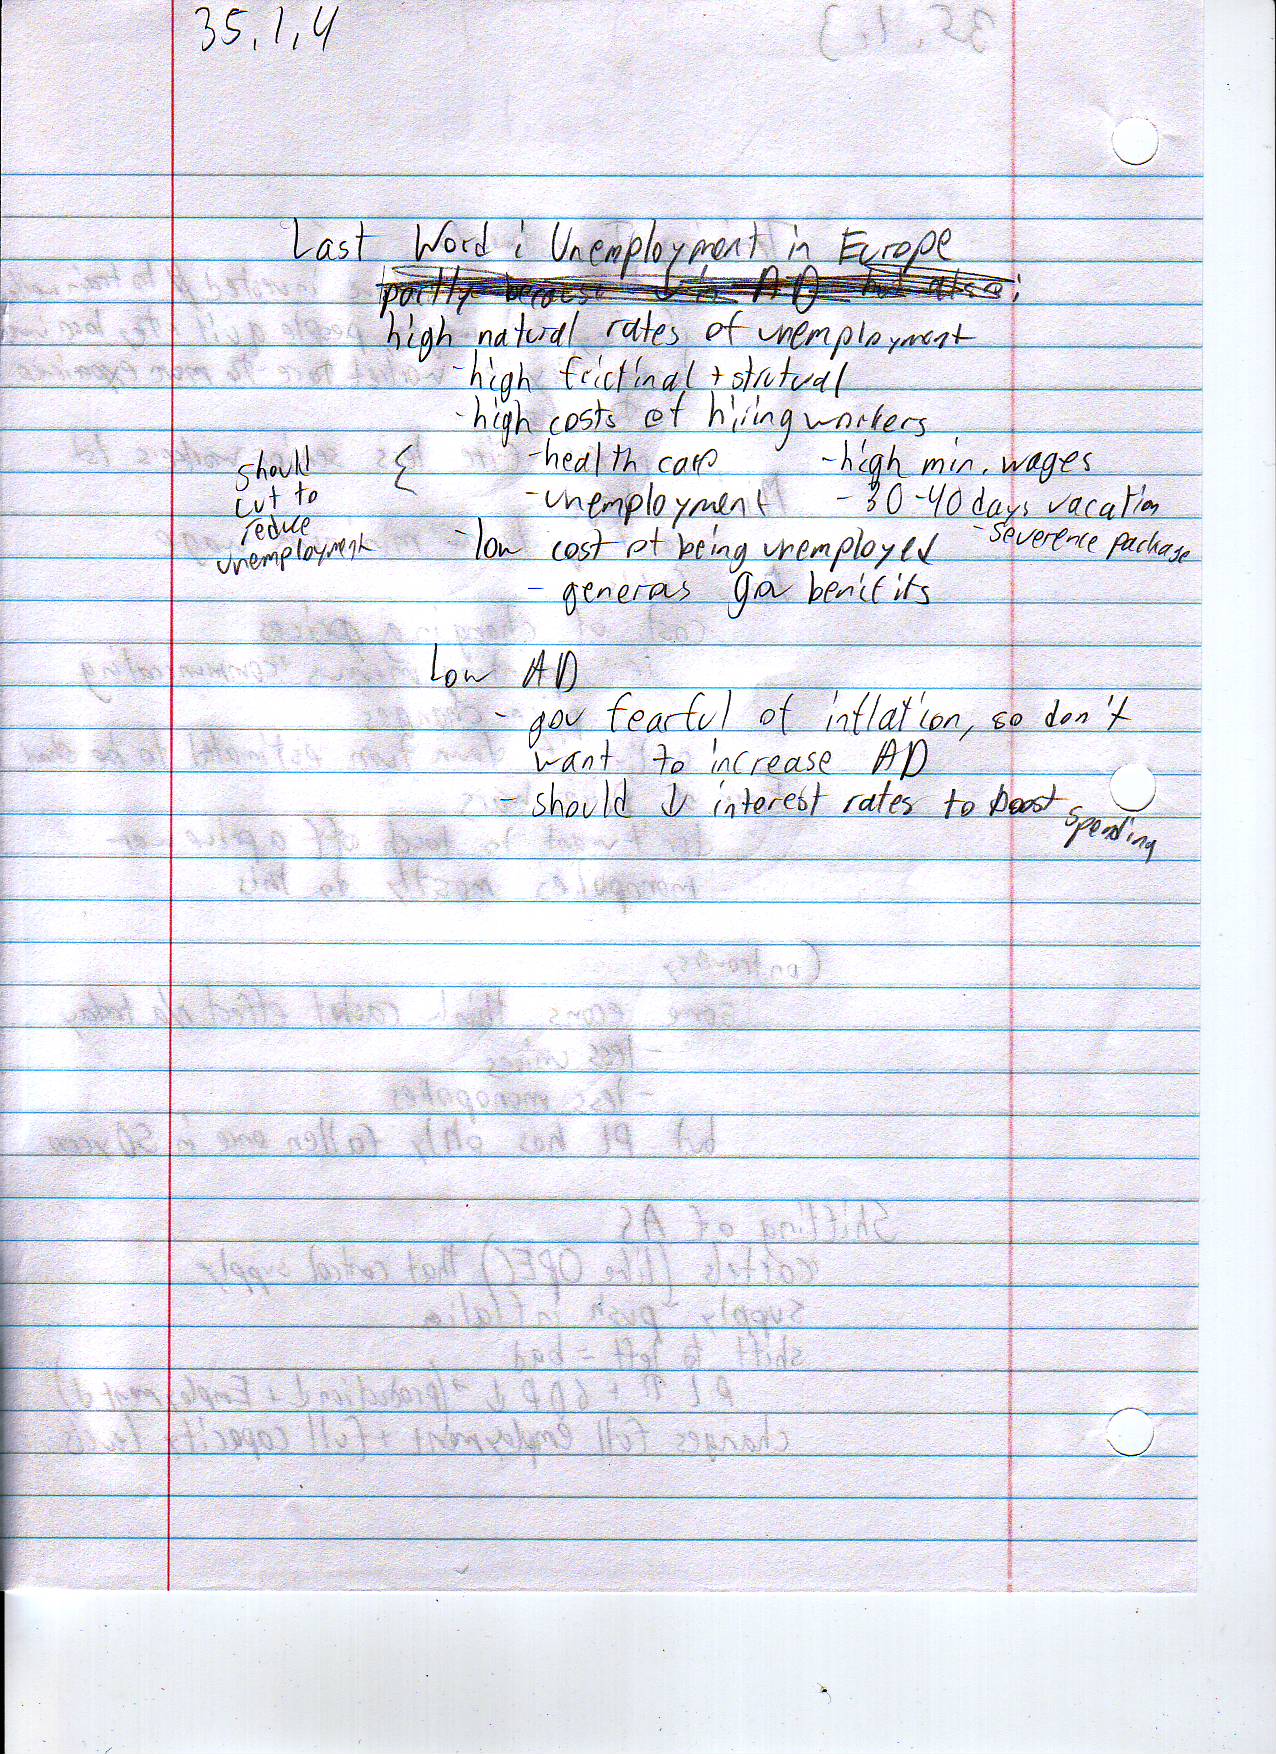 35.1.4
Last Word: Unemployment in Europe
partly because ↓ in AD but also:
high natural rates of unemployment
-high frictinal + strutual
-high costs of hiring workers
should cut to reduce unemployment { -health care -high min. wages
-unemployment -30-40 days vacation
-severence package
-low cost of being unemployed
- generas gov benifits
Low AD
- gov fearful of inflation, so don't
want to increase AD
- should ↓ interest rates to boost spending